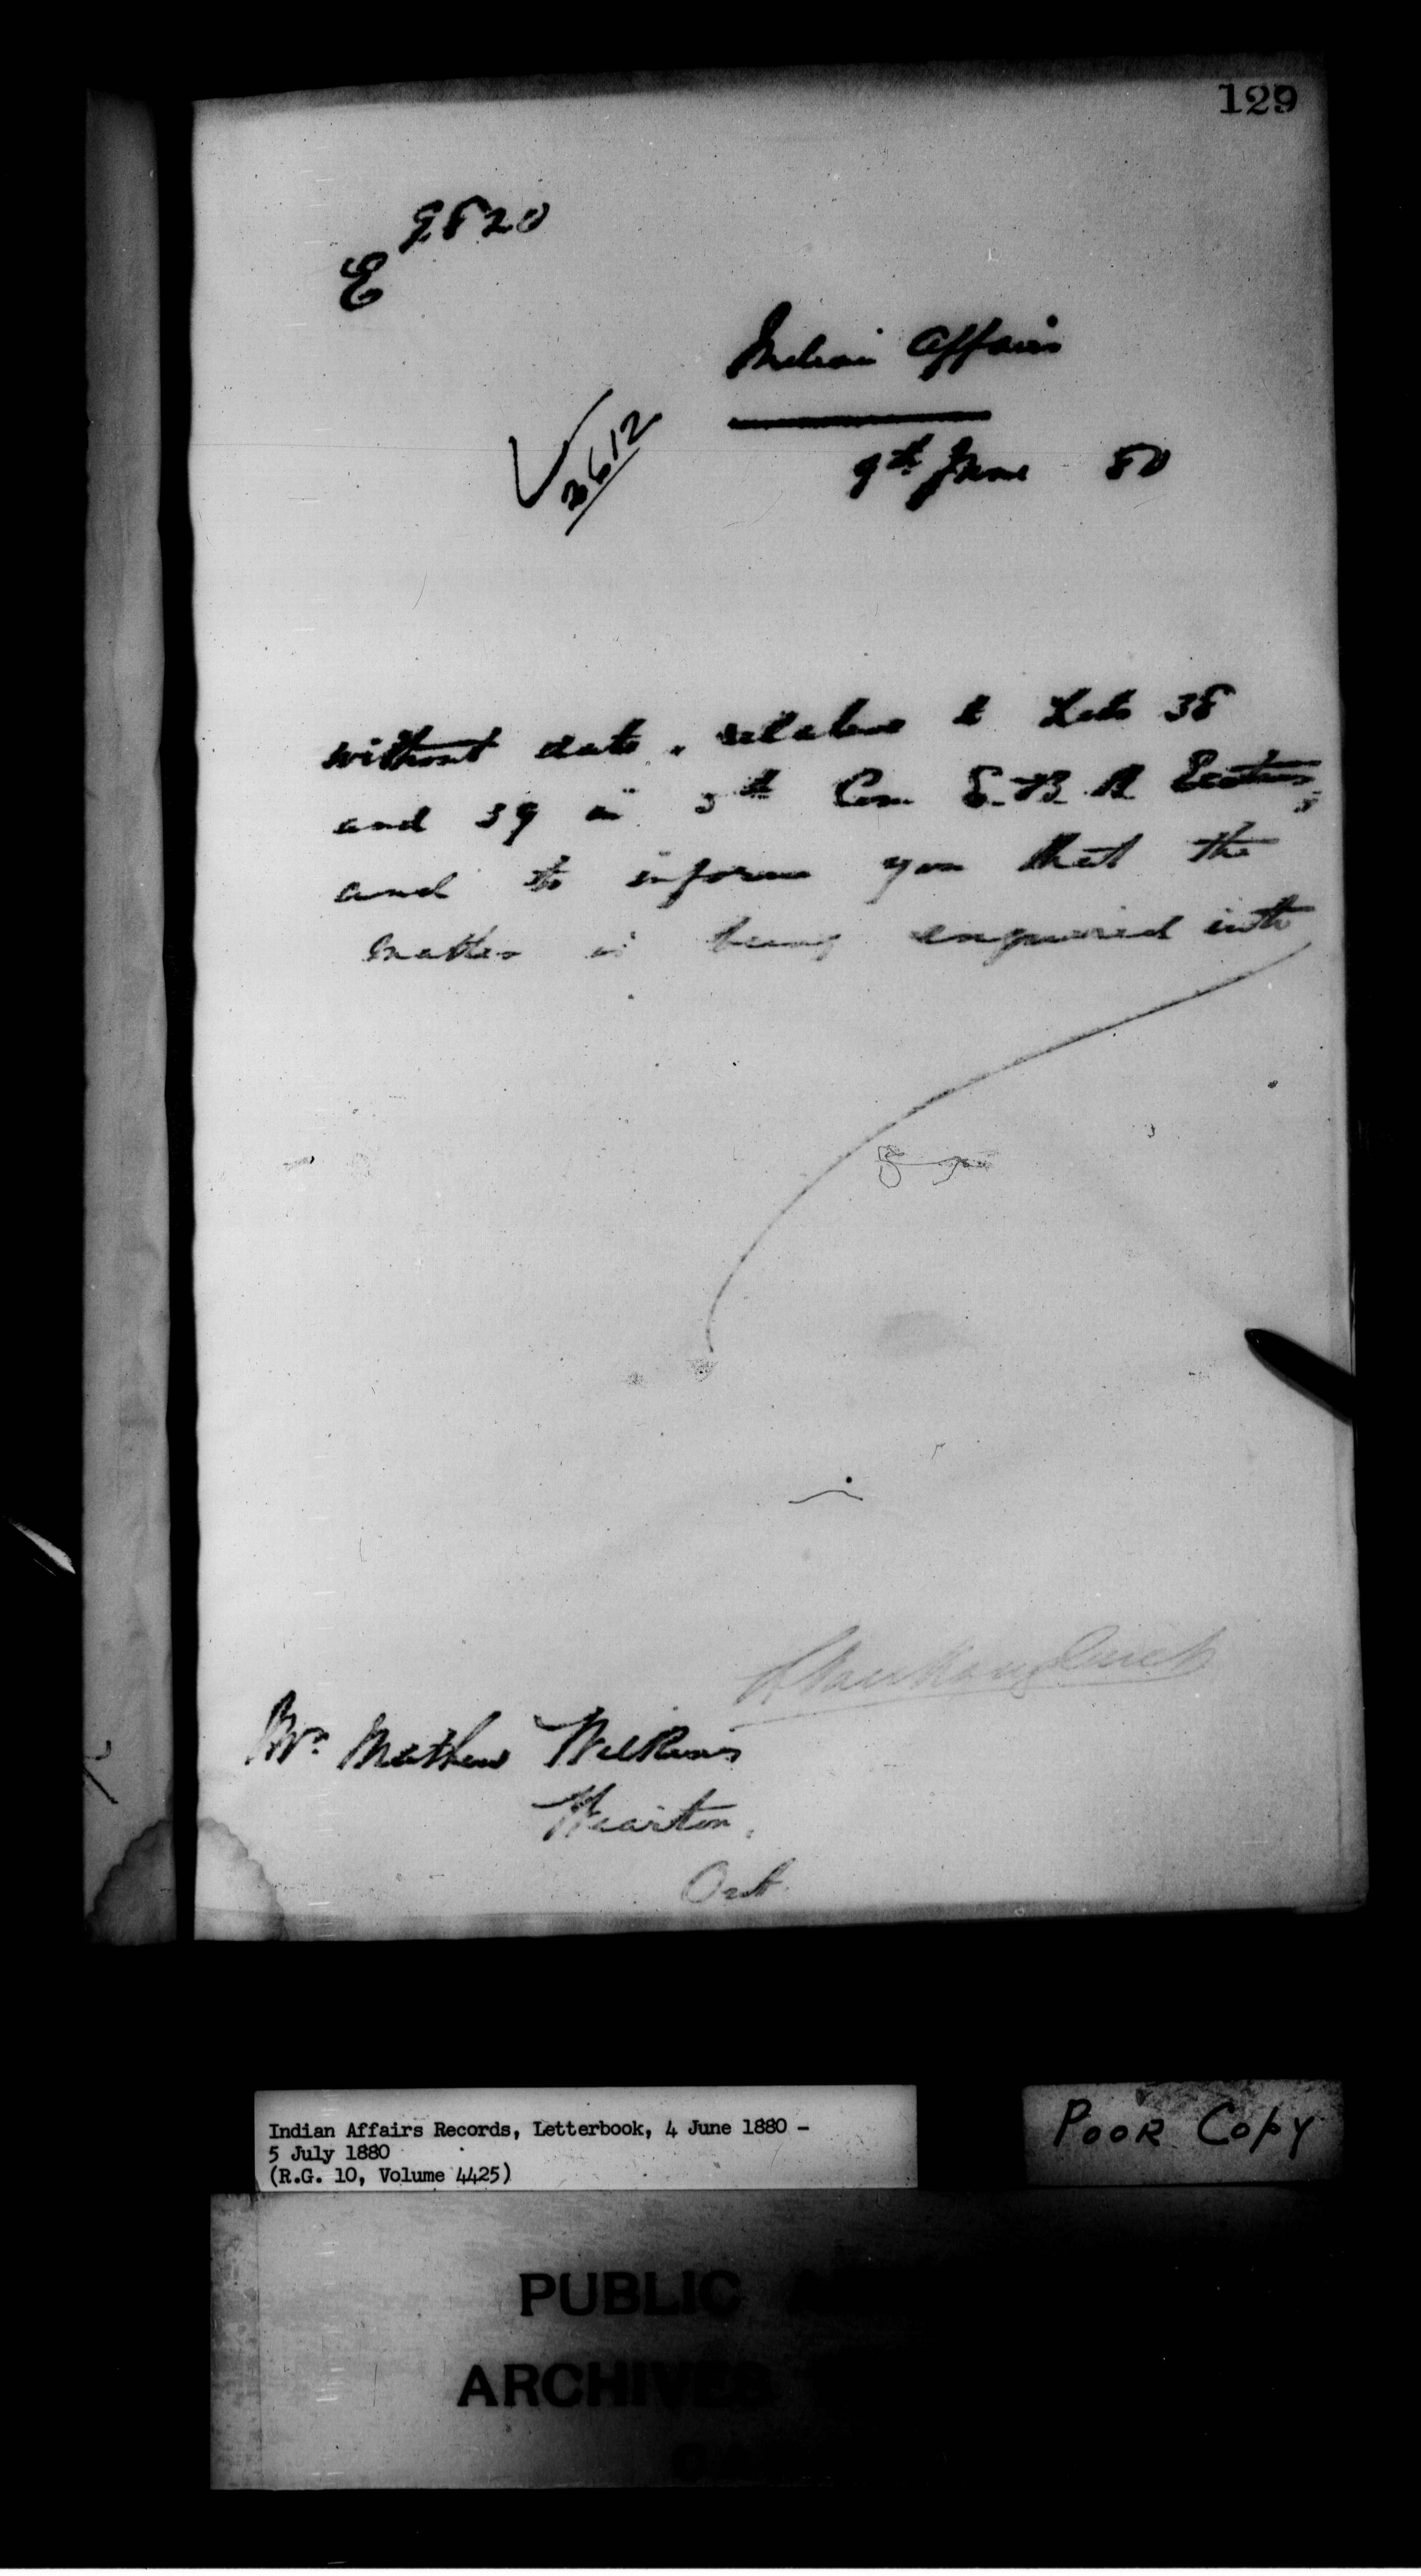 129
9820
E
Indian Affairs
3612
9th June 80
without date, relative to Lots 38
and 39 in 5th Con E.B.R. Eastnor,
and to inform you that the
matter is being enquired into
L Vankoughnet
Mr. Mathew Wilkins
Wiarton,
Ont
Indian Affairs Records, Letterbook, 4 June 1880 -
5 July 1880
(R.G. 10, Volume 4425)
POOR COPY
PUBLIC
ARCHIVES